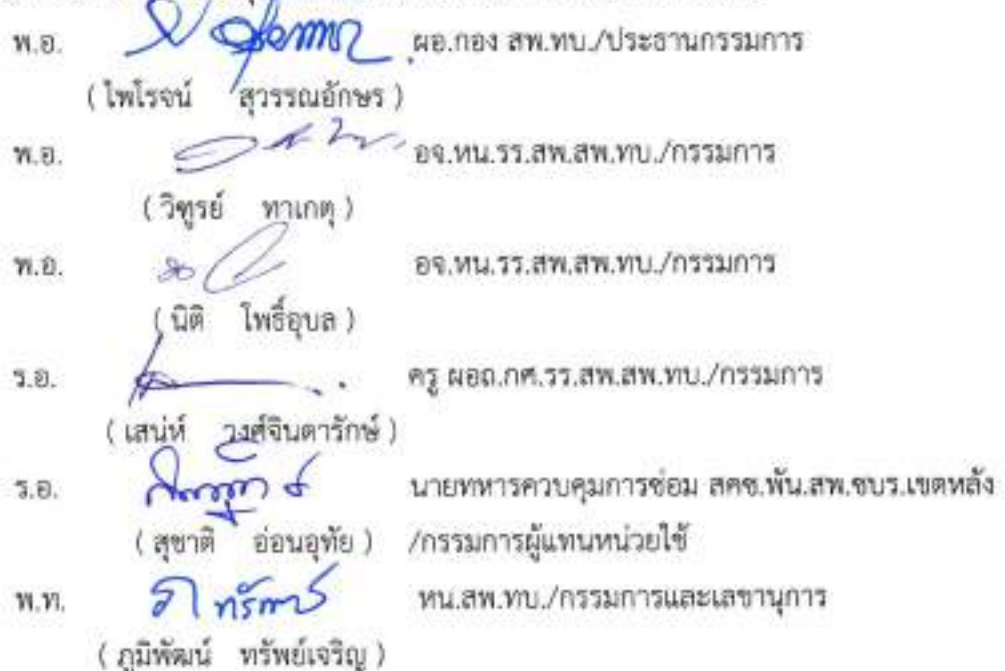 พ.อ. ผอ.กอง สพ.ทบ./ประธานกรรมการ
( ไพโรจน์ สุวรรณอักษร )
พ.อ. อจ.หน.รร.สพ.สพ.ทบ./กรรมการ
( วิฑูรย์ ทาเกตุ )
พ.อ. อจ.หน.รร.สพ.สพ.ทบ./กรรมการ
( นิติ โพธิ์อุบล )
ร.อ. ครู ผอถ.กศ.รร.สพ.สพ.ทบ./กรรมการ
( เสน่ห์ วงศ์จินดารักษ์ )
ร.อ. นายทหารควบคุมการซ่อม สคช.พัน.สพ.ซบร.เขตหลัง
( สุชาติ อ่อนอุทัย ) /กรรมการผู้แทนหน่วยใช้
พ.ท. หน.สพ.ทบ./กรรมการและเลขานุการ
( ภูมิพัฒน์ ทรัพย์เจริญ )